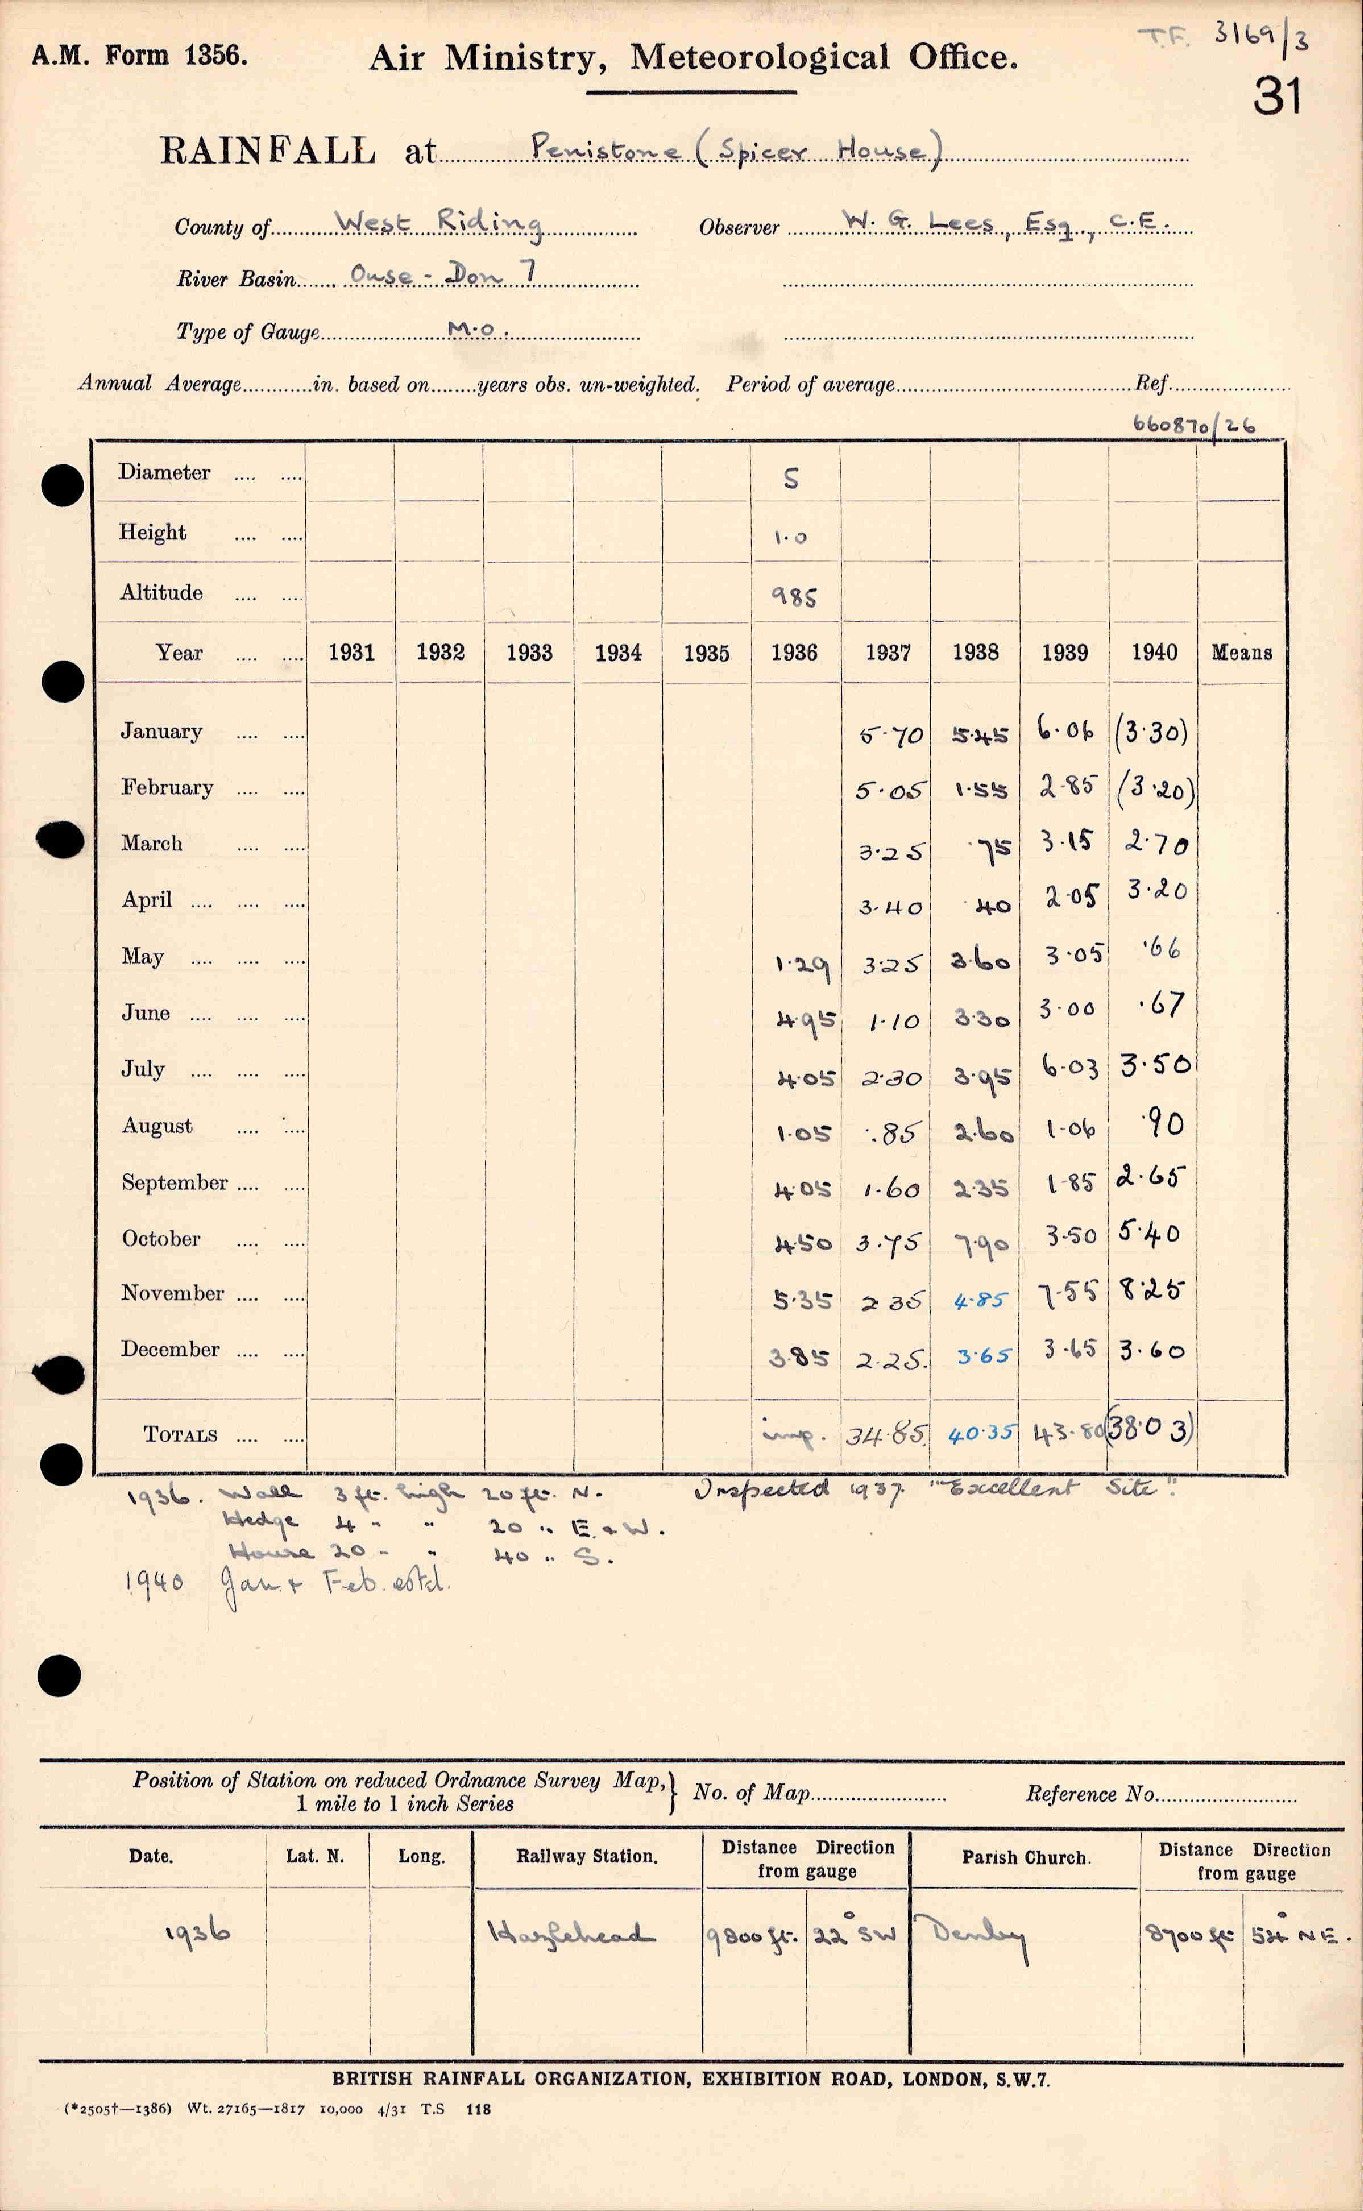 T.F. 3169/3
A.M. Form 1356. Air Ministry, Meteorological Office.
31
RAINFALL at Penistone (Spicer House)
County of West Riding Observer W. G. Lees, Esq., C.E.
River Basin Ouse - Don 7
Type of Gauge M.O.
Annual Average in. based on years obs. un-weighted. Period of average Ref.
660870/26
Diameter 5
Height 1.0
Altitude 985
Year 1931 1932 1933 1934 1935 1936 1937 1938 1939 1940 Means
January 5.70 5.45 6.06 (3.30)
February 5.05 1.55 2.85 (3.20)
March 3.25 .75 3.15 2.70
April 3.40 .40 2.05 3.20
May 1.29 3.25 3.60 3.05 .66
June 4.95 1.10 3.30 3.00 .67
July 4.05 2.30 3.95 6.03 3.50
August 1.05 .85 2.60 1.06 .90
September 4.05 1.60 2.35 1.85 2.65
October 4.50 3.75 7.90 3.50 5.40
November 5.35 2.35 4.85 7.55 8.25
December 3.85 2.25 3.65 3.65 3.60
TOTALS imp. 34.85 40.35 43.80 (38.03)
1936. Wall 3 ft. high 20 ft. N. Inspected 1937 "Excellent Site".
Hedge 4 " " 20 " E. & W.
House 20 " " 40 " S.
1940 Jan & Feb. estd.
Position of Station on reduced Ordnance Survey Map, 1 mile to 1 inch Series } No. of Map Reference No.
Date. Lat. N. Long. Railway Station. Distance Direction from gauge Parish Church. Distance Direction from gauge
1936 Hazlehead 9800 ft. 22° SW Denby 8700 ft 54° NE.
BRITISH RAINFALL ORGANIZATION, EXHIBITION ROAD, LONDON, S.W.7.
(*2505†—1386) Wt. 27165—1817 10,000 4/31 T.S 118